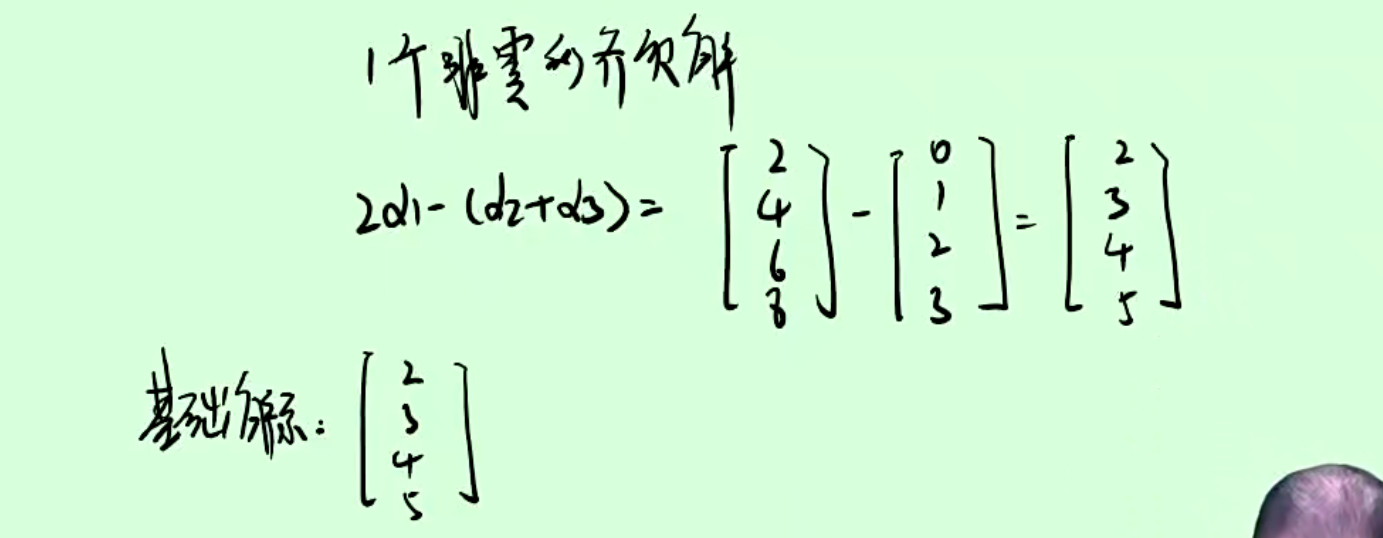 1个非零的齐次解
2α1-(α2+α3)= [2 4 6 8] - [0 1 2 3] = [2 3 4 5]
基础解系: [2 3 4 5]